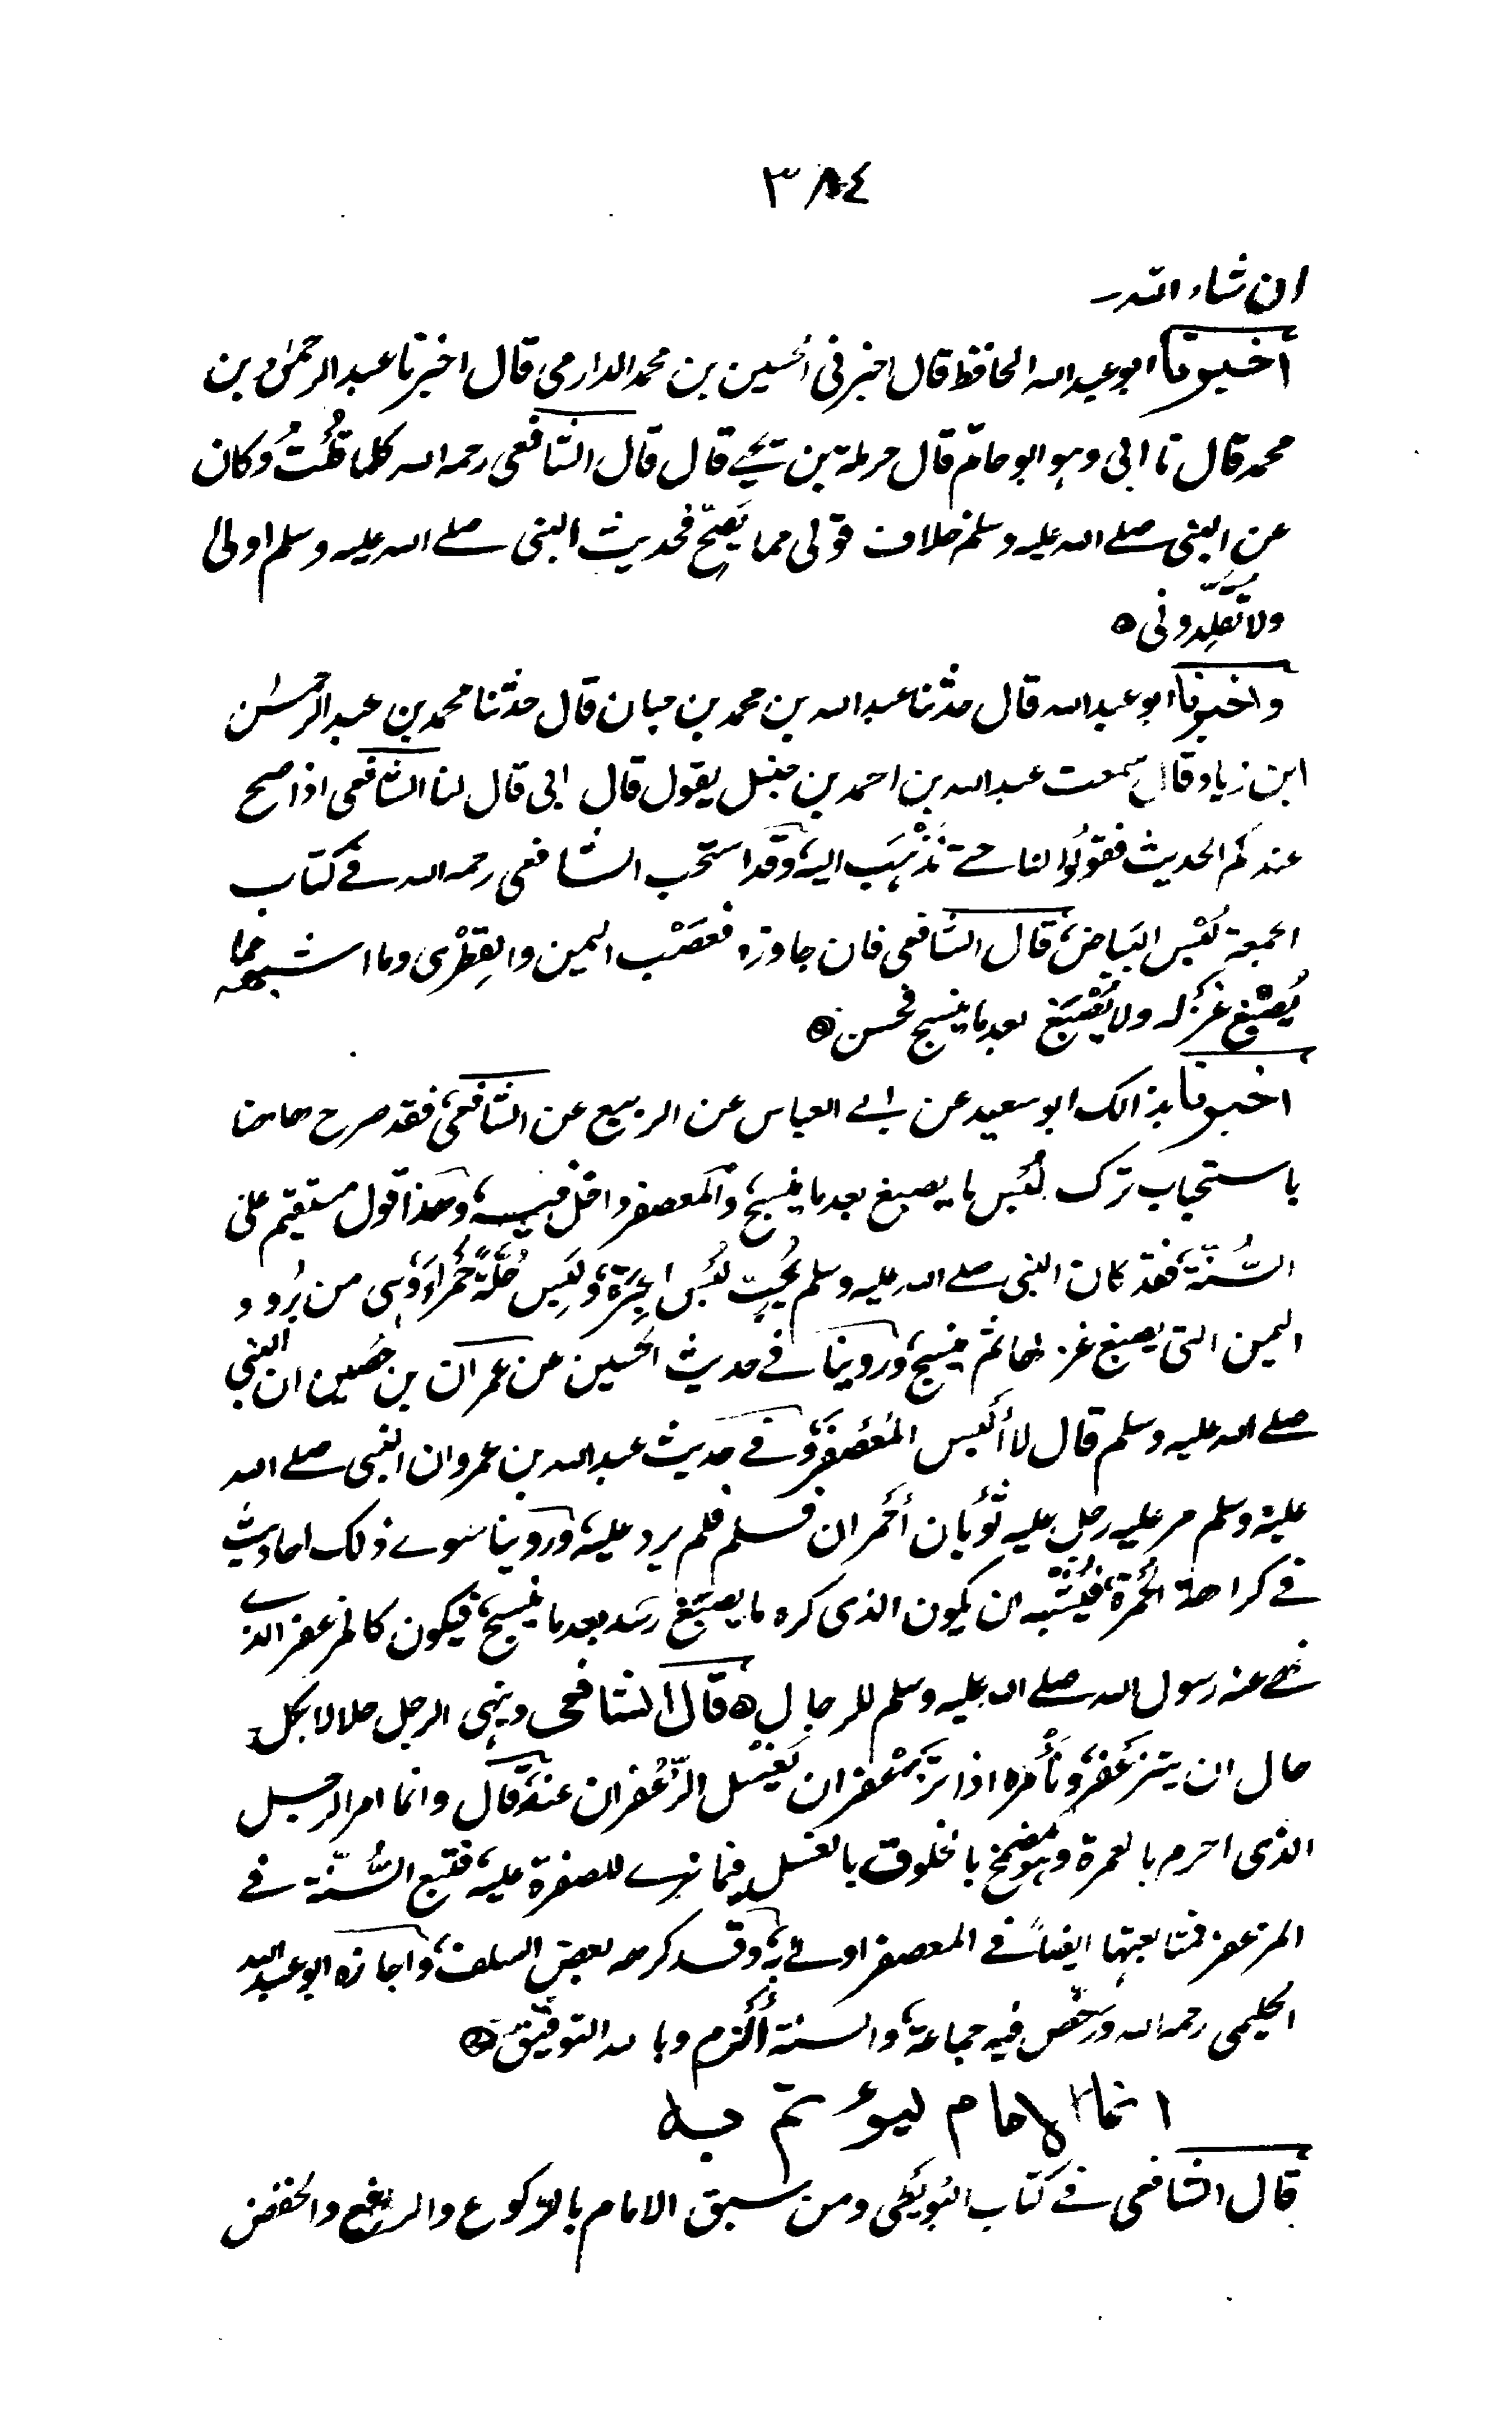 ٣٨٤
ان شاء الله
أخبرنا ابو عبد الله الحافظ قال اخبرني الحسين بن محمد الدارمي قال اخبرنا عبد الرحمٰن بن
محمد قال نا ابي وهو ابو حاتم قال حرملة بن يحيے قال قال الشافعي رحمه الله كلما قلتُ وكان
عن النبي صلے الله عليه وسلم خلاف قولي مما يَصِحّ فحديث النبي صلے الله عليه وسلم اولىٰ
ولا تُقَلِّدوني ه
واخبرنا ابو عبد الله قال حدثنا عبد الله بن محمد بن حبان قال حدثنا محمد بن عبد الرحمٰن
ابن زياد قال سمعت عبد الله بن احمد بن حنبل يقول قال ابي قال لنا الشافعي اذا صح
عندكم الحديث فقولُوا لنا حتے نَذْهَب اليه، وقد استحب الشافعي رحمه الله في كتاب
الجمعة لُبْس البَياض، قال الشافعي فان جاوزه فعَصْب اليمن والقِطْرى وما اشبهه مما
يُصْبغ غَزْله ولا يُصْبَغ بعد ما ينسج فحسن ه
اخبرنا بذالك ابو سعيد عن ابے العباس عن الربيع عن الشافعي، فقد صرح هاهنا
باستحباب ترك لُبْس ما يصبغ بعد ما ينسج، والمعصفر داخل فيه، وهذا قول مستقيم على
السُّنّة، فقد كان النبي صلے الله عليه وسلم يُحِبّ لُبْس الحِبَرَة، ولَبِس حُلّةً حَمْراء، وهي من بُرود
اليمن التي يصبغ غزلها ثم ينسج، وروينا في حديث الحسين عن عمران بن حُصين ان النبي
صلے الله عليه وسلم قال لا أَلْبس المُعَصْفَر، وفي حديث عبد الله بن عمرو ان النبي صلے الله
عليه وسلم مر عليه رجل عليه ثَوْبان أَحْمران فسلم فلم يرد عليه، وروينا سوے ذلك احاديث
في كراهة الحُمْرة، فيُشْبه ان يكون الذي كره ما يصبَغ بعد ما ينسج، فيكون كالمزعفر الذے
نهے عنه رسول الله صلے الله عليه وسلم للرجال ه قال الشافعي وينهى الرجل حلالا بكل
حال ان يتزَعْفَر، ونأمُره اذا تزَعْفر ان يَغْسِل الزّعْفران عنه، قال وانما امر الرجل
الذي احرم بالعمرة وهو مضمخ بالخلوق بالغسل فيما نرے للصفرة عليه، فتتبع السُّنّة في
المزعفر فمتابعتها ايضاً في المعصفر اولے به، وقد كرهه بعض السلف، واجازه ابو عبد الله
الحليمي رحمه الله ورَخّص فيه جماعة، والسنة أَلْزم وبالله التوفيق ه
انما الامام ليؤتم به
قال الشافعي في كتاب البُوَيطي ومن سبق الامام بالركوع والرفع والخفض